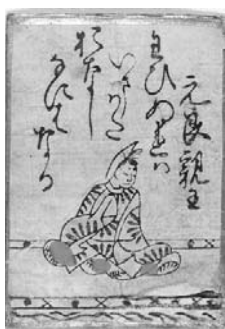 元良親王
わひぬれハ
いまはた
おなし
なにはなる